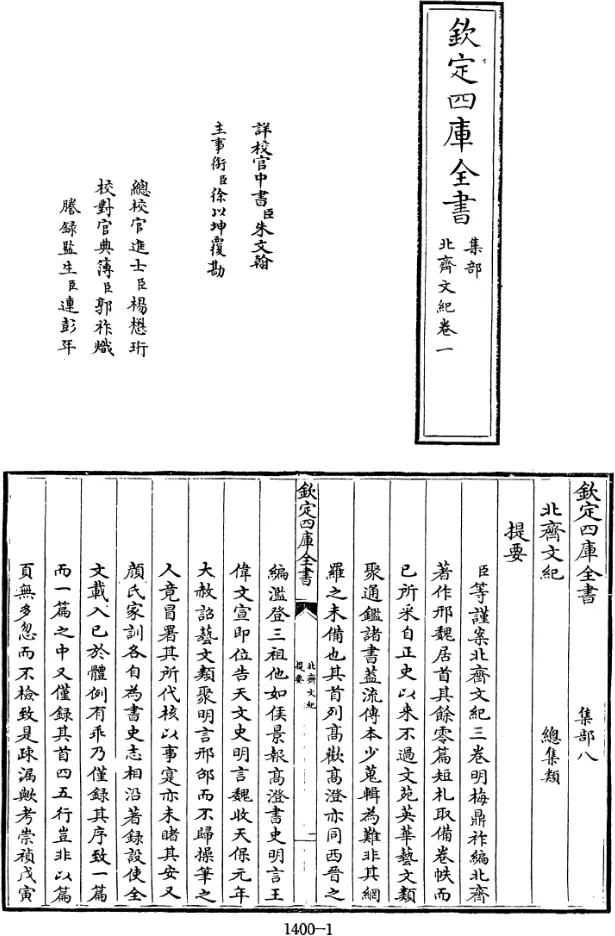 欽定四庫全書
集部
北齊文紀卷一
詳校官中書臣朱文翰
主事銜臣徐以坤覆勘
總校官進士臣楊懋珩
校對官典簿臣郭祚熾
謄錄監生臣連彭年
欽定四庫全書 集部八
北齊文紀 總集類
提要
臣等謹案北齊文紀三卷明梅鼎祚編北齊
著作邢魏居首其餘零篇短札取備卷帙而
已所采自正史以來不過文苑英華藝文類
聚通鑑諸書蓋流傳本少蒐輯為難非其網
羅之未備也其首列高歡高澄亦同西晉之
欽定四庫全書
北齊文紀
提要
二
編濫登三祖他如侯景報高澄書史明言王
偉文宣即位告天文史明言魏收天保元年
大赦詔藝文類聚明言邢卲而不歸操筆之
人竟冒署其所代核以事寔亦未睹其安又
顔氏家訓各自為書史志相沿著錄設使全
文載入已於體例有乖乃僅錄其序致一篇
而一篇之中又僅錄其首四五行豈非以篇
頁無多忽而不檢致是疎漏歟考崇禎戊寅
1400-1